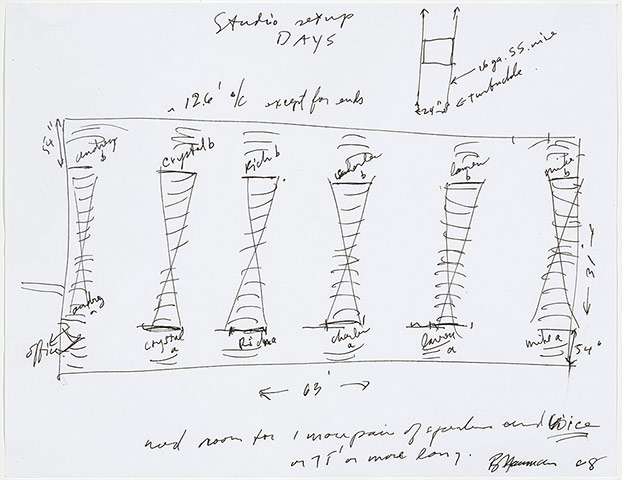 Studio setup
DAYS
16 ga. SS. wire
24" turnbuckle
~ 12.6' o/c except for ends
54"
andrey b
crystal b
Rich b
b
lauren b
mike b
31'
andrey a
office
crystal a
Rich a
charlie a
lauren a
mike a
54"
63'
need room for 1 more pair of speakers and voice
or 75' or more long.
B Nauman 08